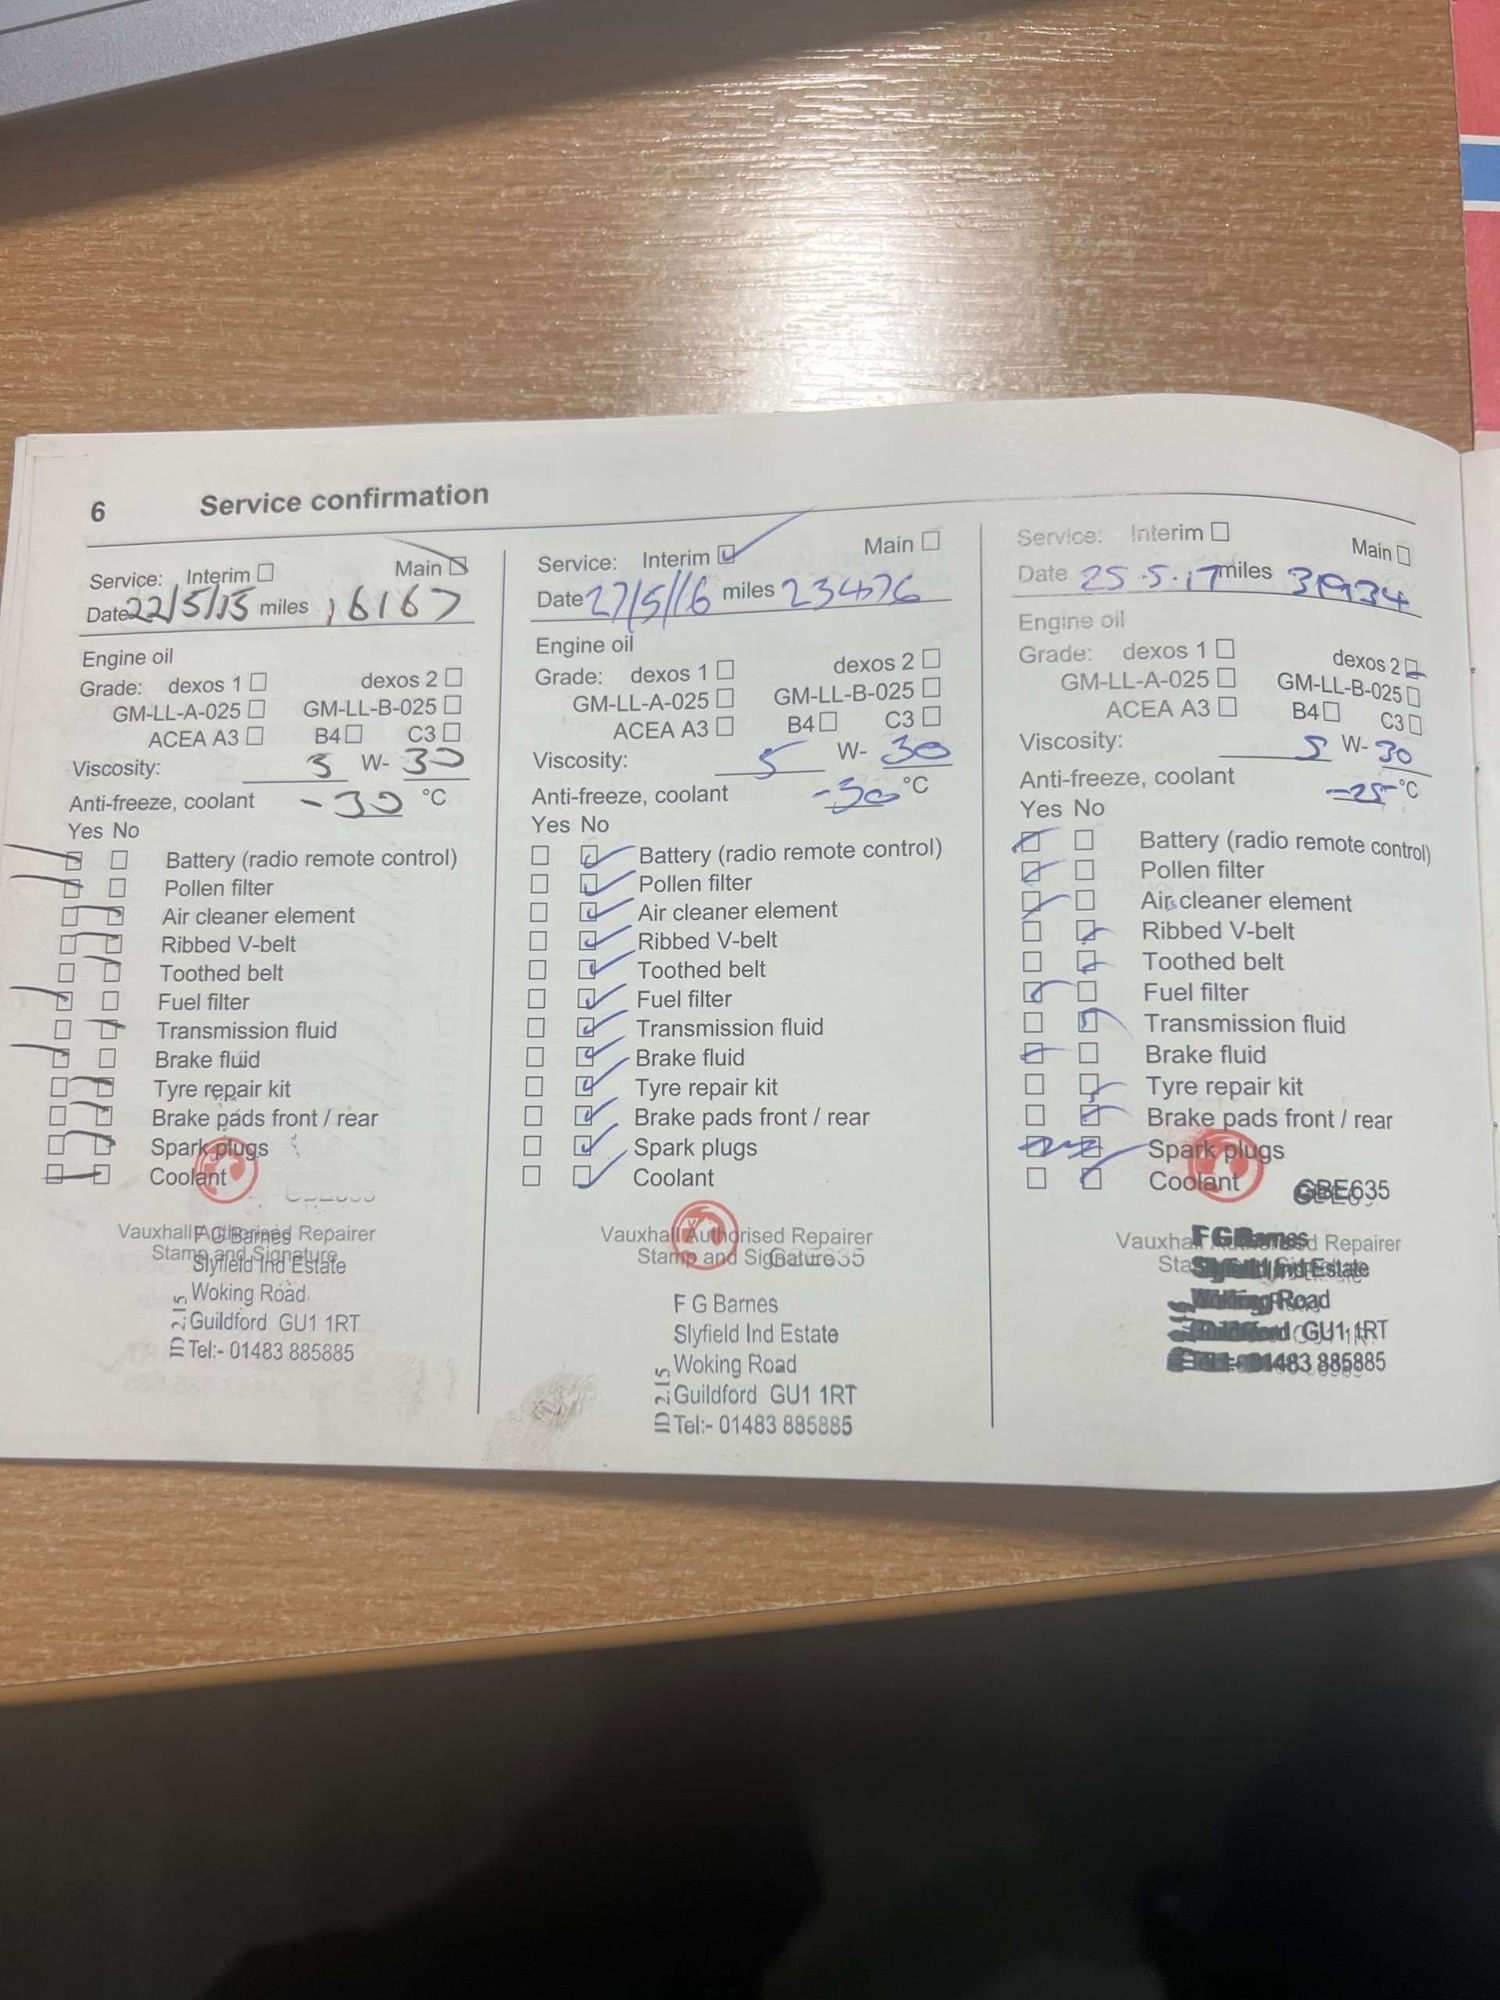 6 Service confirmation
Service: Interim ☐ Main ☑
Date 22/5/15 miles 16167
Engine oil
Grade: dexos 1 ☐ dexos 2 ☐
GM-LL-A-025 ☐ GM-LL-B-025 ☐
ACEA A3 ☐ B4 ☐ C3 ☐
Viscosity: 5 W- 30
Anti-freeze, coolant -30 °C
Yes No
☑ ☐ Battery (radio remote control)
☑ ☐ Pollen filter
☐ ☑ Air cleaner element
☐ ☑ Ribbed V-belt
☐ ☑ Toothed belt
☑ ☐ Fuel filter
☐ ☑ Transmission fluid
☑ ☐ Brake fluid
☐ ☑ Tyre repair kit
☐ ☑ Brake pads front / rear
☐ ☑ Spark plugs
☐ ☑ Coolant
Vauxhall Authorised Repairer
Stamp and Signature
F G Barnes
Slyfield Ind Estate
Woking Road
Guildford GU1 1RT
Tel:- 01483 885885
ID 2.15
Service: Interim ☑ Main ☐
Date 27/5/16 miles 23476
Engine oil
Grade: dexos 1 ☐ dexos 2 ☐
GM-LL-A-025 ☐ GM-LL-B-025 ☐
ACEA A3 ☐ B4 ☐ C3 ☐
Viscosity: 5 W- 30
Anti-freeze, coolant -30 °C
Yes No
☐ ☑ Battery (radio remote control)
☐ ☑ Pollen filter
☐ ☑ Air cleaner element
☐ ☑ Ribbed V-belt
☐ ☑ Toothed belt
☐ ☑ Fuel filter
☐ ☑ Transmission fluid
☐ ☑ Brake fluid
☐ ☑ Tyre repair kit
☐ ☑ Brake pads front / rear
☐ ☑ Spark plugs
☐ ☑ Coolant
Vauxhall Authorised Repairer
Stamp and Signature
GBE635
F G Barnes
Slyfield Ind Estate
Woking Road
Guildford GU1 1RT
Tel:- 01483 885885
ID 2.15
Service: Interim ☐ Main ☐
Date 25.5.17 miles 31934
Engine oil
Grade: dexos 1 ☐ dexos 2 ☑
GM-LL-A-025 ☐ GM-LL-B-025 ☐
ACEA A3 ☐ B4 ☐ C3 ☐
Viscosity: 5 W- 30
Anti-freeze, coolant -25 °C
Yes No
☑ ☐ Battery (radio remote control)
☑ ☐ Pollen filter
☑ ☐ Air cleaner element
☐ ☑ Ribbed V-belt
☐ ☑ Toothed belt
☑ ☐ Fuel filter
☐ ☑ Transmission fluid
☑ ☐ Brake fluid
☐ ☑ Tyre repair kit
☐ ☑ Brake pads front / rear
☐ ☑ Spark plugs
☐ ☑ Coolant
GBE635
F G Barnes
Ind Estate
Woking Road
GU1 1RT
01483 885885